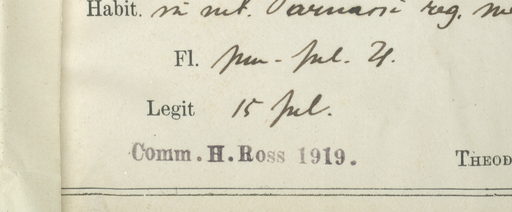 Habit. in mt. Parnassi reg. me
Fl. jun - jul. 4.
Legit 15 jul.
Comm. H. Ross 1919.
THEOD